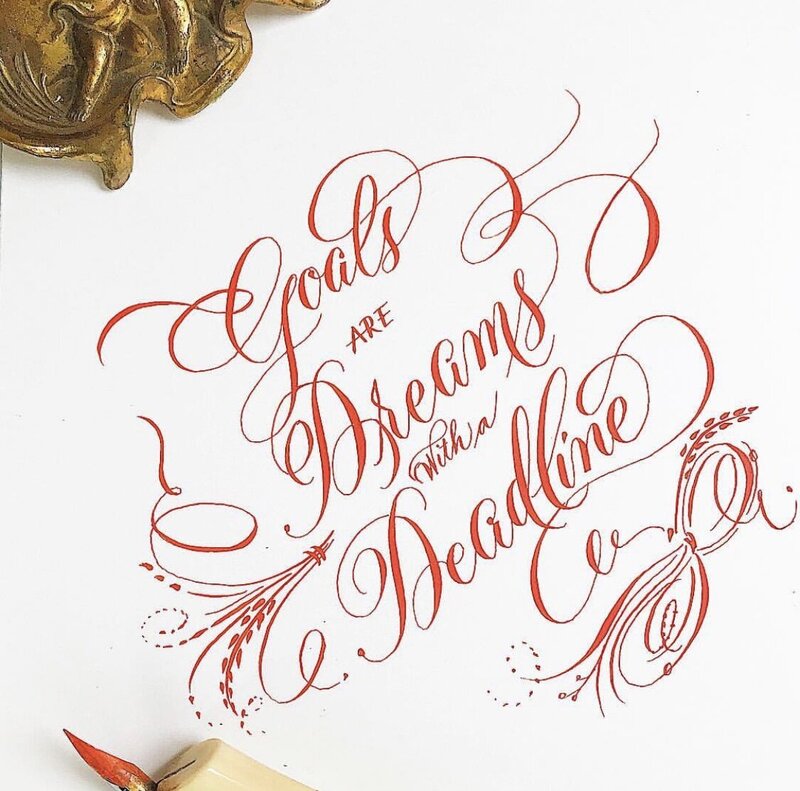 Goals
ARE
Dreams
With a
Deadline